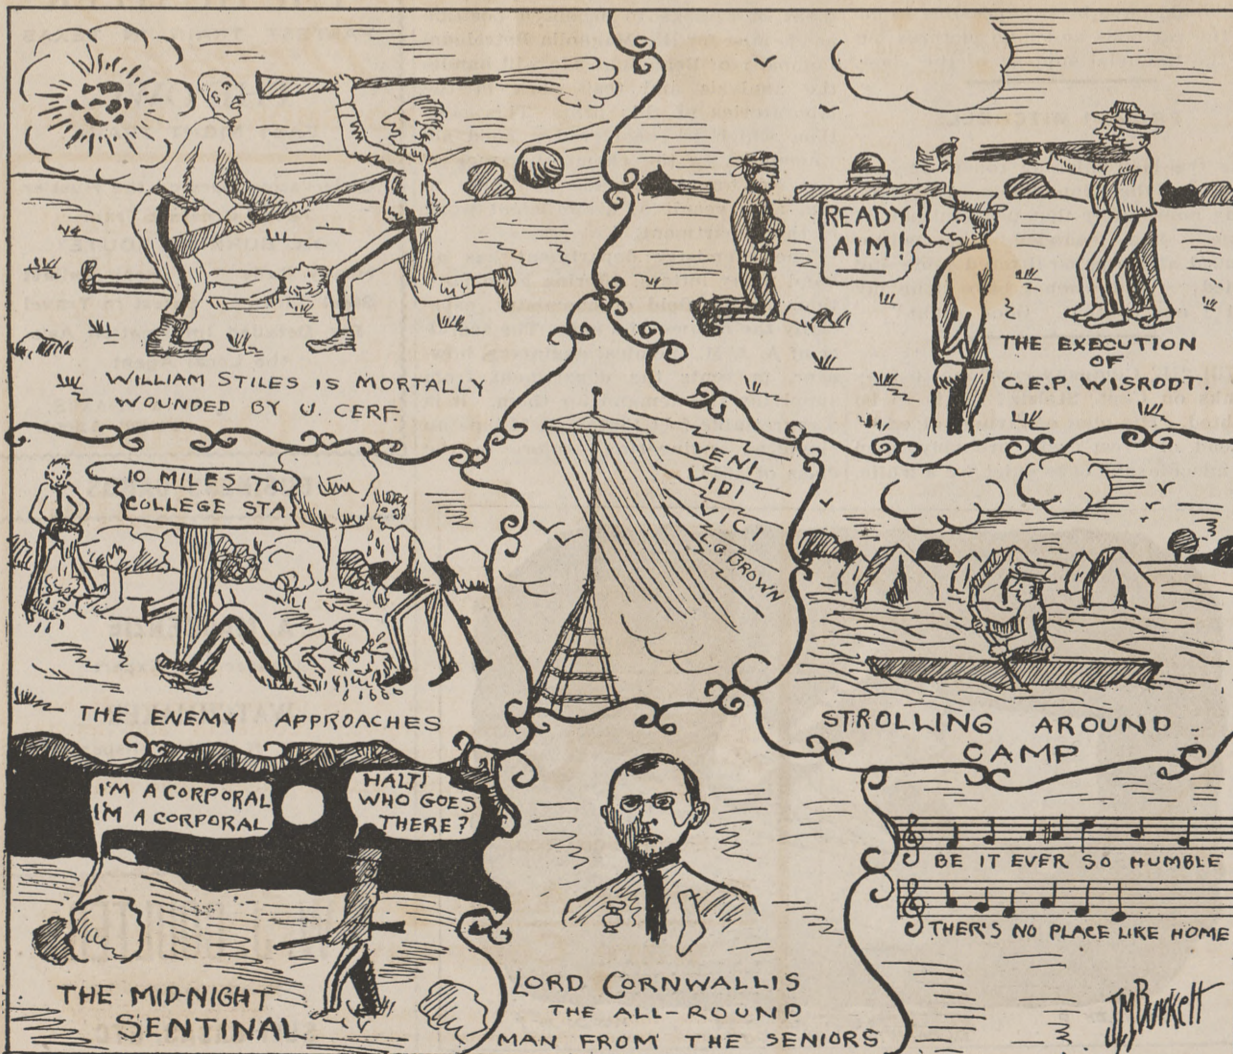 WILLIAM STILES IS MORTALLY
WOUNDED BY U. CERF
READY!
AIM!
THE EXECUTION
OF
C.E.P. WISRODT.
10 MILES TO
COLLEGE STA
THE ENEMY APPROACHES
VENI
VIDI
VICI
L.G. BROWN
STROLLING AROUND
CAMP
I'M A CORPORAL
I'M A CORPORAL
HALT!
WHO GOES
THERE?
THE MID-NIGHT
SENTINAL
LORD CORNWALLIS
THE ALL-ROUND
MAN FROM THE SENIORS
BE IT EVER SO HUMBLE
THER'S NO PLACE LIKE HOME
JM Burkett